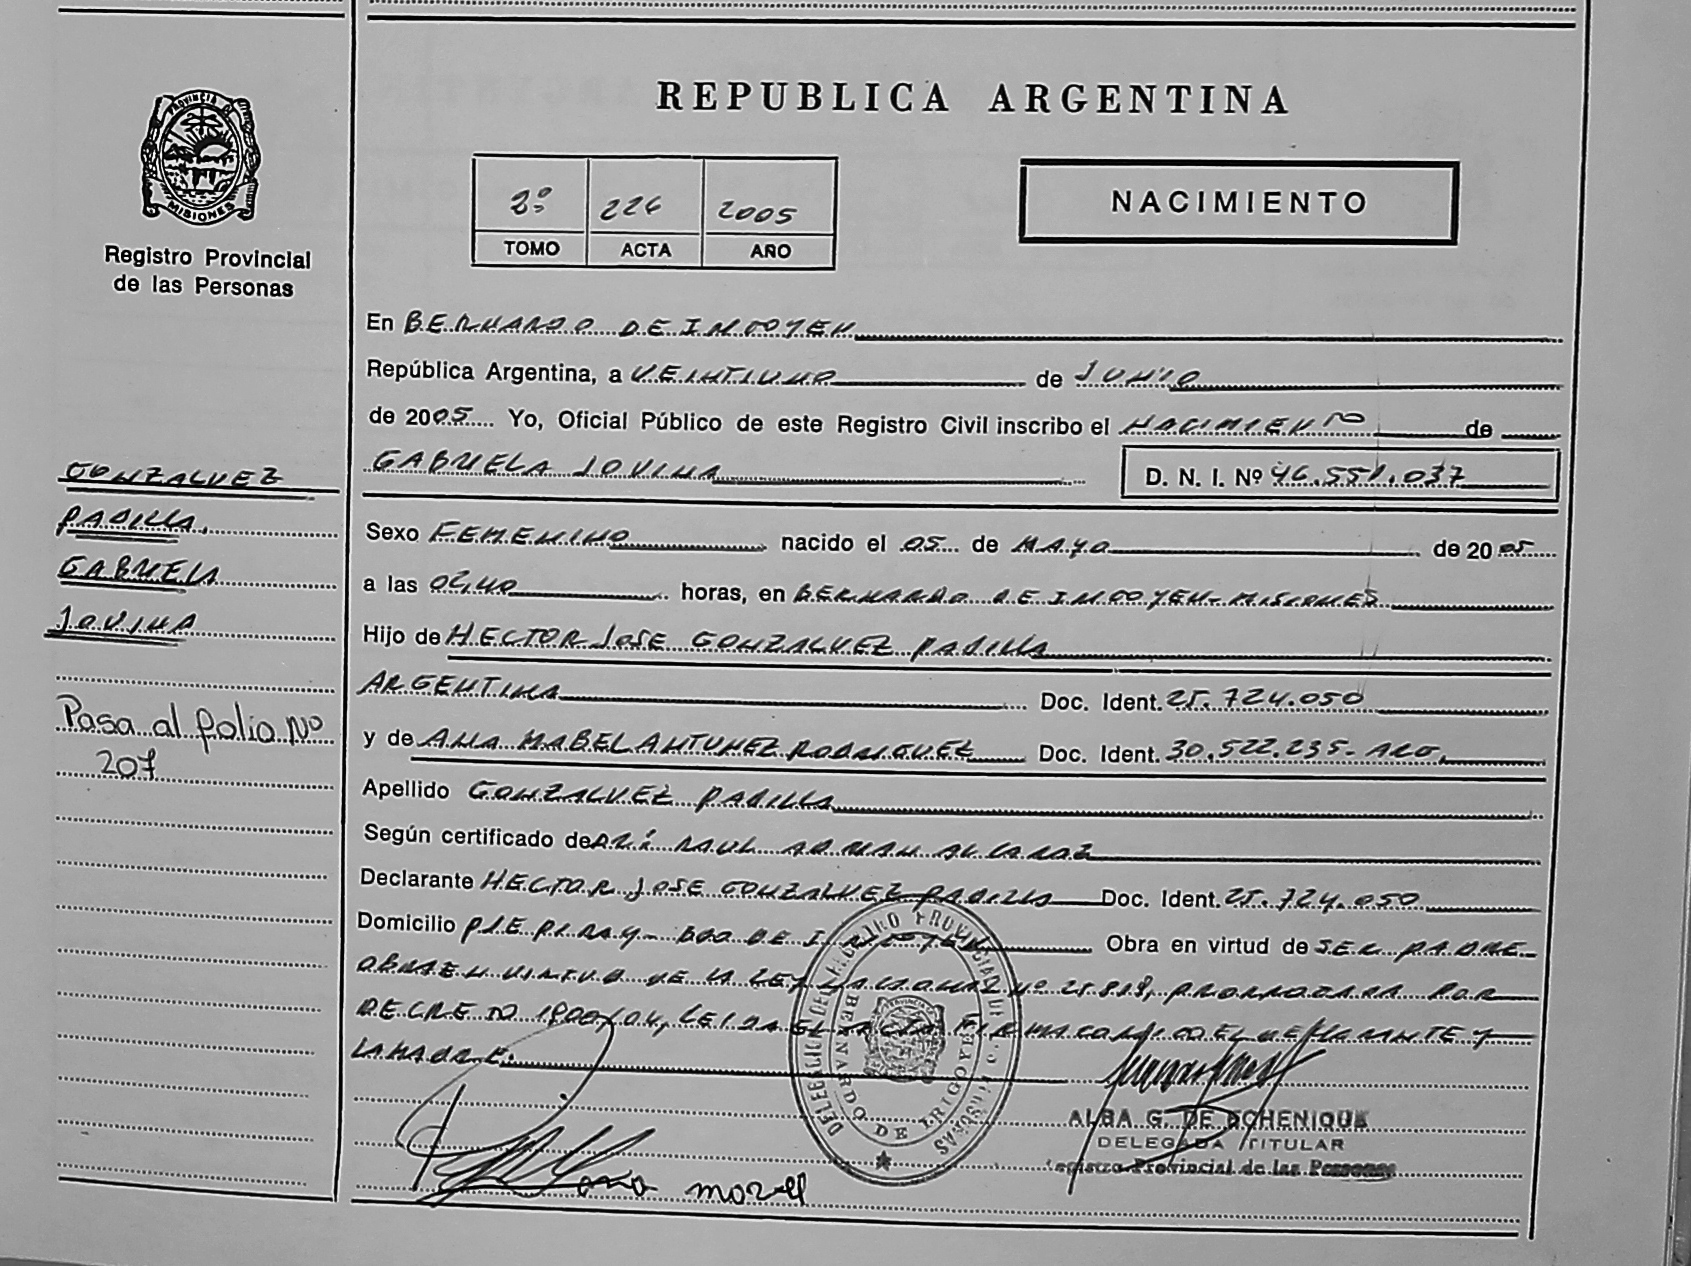 REPUBLICA ARGENTINA
PROVINCIA
MISIONES
Registro Provincial
de las Personas
2º 226 2005
TOMO ACTA AÑO
NACIMIENTO
En BERNARDO DE IRIGOYEN
República Argentina, a VEINTIUNO de JUNIO
de 2005 Yo, Oficial Público de este Registro Civil inscribo el NACIMIENTO de
GABRIELA JOVINA D. N. I. Nº 46.551.037
Sexo FEMENINO nacido el 05 de MAYO de 2005
a las 02,40 horas, en BERNARDO DE IRIGOYEN-MISIONES
Hijo de HECTOR JOSE GONZALVEZ PADILLA
ARGENTINA Doc. Ident. 25.724.050
y de ANA MABEL ANTUNEZ RODRIGUEZ Doc. Ident. 30.522.235- ARG.
Apellido GONZALVEZ PADILLA
Según certificado de RAUL ALCARAZ
Declarante HECTOR JOSE GONZALVEZ PADILLA Doc. Ident. 25.724.050
Domicilio PJE PIRAY - BDO DE IRIGOYEN Obra en virtud de SER PADRE-
OBRA EN VIRTUD DE LA LEY NACIONAL Nº 25.819, PRORROGADA POR
DECRETO 1900/04, LEIDA EL ACTA FIRMA CONMIGO EL DECLARANTE Y
LA MADRE.
GONZALVEZ
PADILLA,
GABRIELA
JOVINA
Pasa al folio Nº
207
DELEGACION DEL REGISTRO PROVINCIAL DE LAS PERSONAS
BERNARDO DE IRIGOYEN
PROVINCIA
ALBA G. DE DCHENIQUE
DELEGADA TITULAR
Registro Provincial de las Personas